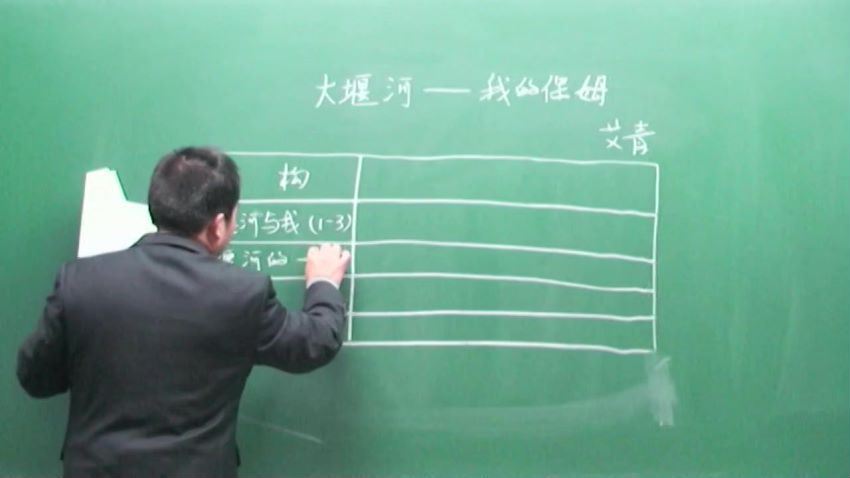 大堰河——我的保姆
艾青
构
河与我(1-3)
堰河的一